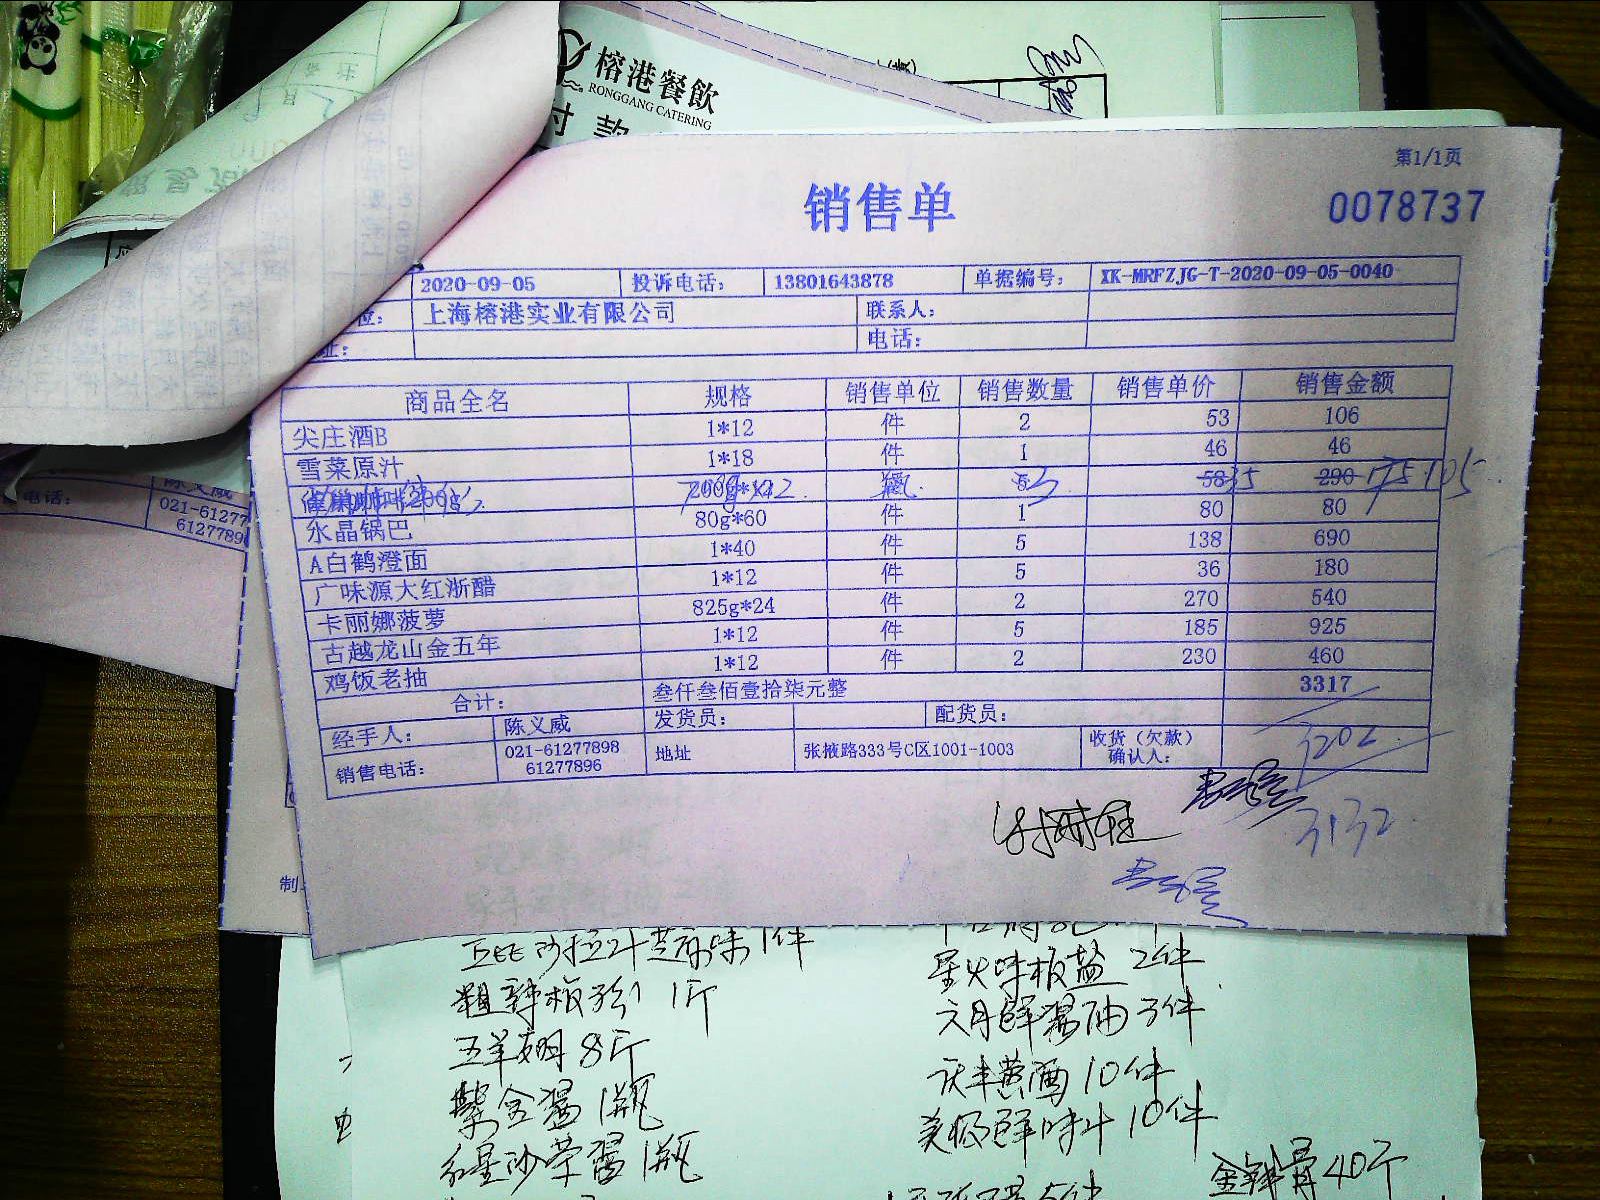 榕港餐飲
RONGGANG CATERING
付款
第1/1页
销售单
0078737
2020-09-05 投诉电话: 13801643878 单据编号: XK-MRFZJG-T-2020-09-05-0040
位: 上海榕港实业有限公司 联系人:
址: 电话:
商品全名 规格 销售单位 销售数量 销售单价 销售金额
尖庄酒B 1*12 件 2 53 106
雪菜原汁 1*18 件 1 46 46
200g 3 58 35 290 175 105
水晶锅巴 80g*60 件 1 80 80
A白鹤澄面 1*40 件 5 138 690
广味源大红浙醋 1*12 件 5 36 180
卡丽娜菠萝 825g*24 件 2 270 540
古越龙山金五年 1*12 件 5 185 925
鸡饭老抽 1*12 件 2 230 460
合计: 叁仟叁佰壹拾柒元整 3317
经手人: 陈义威 发货员: 配货员:
3202
销售电话: 021-61277898 61277896 地址 张掖路333号C区1001-1003 收货(欠款)确认人:
3132
电话: 陈义威
021-61277
6127789
制
芝麻味1件
星火味板盐 2件
1斤
六月鲜酱油 3件
8斤
黄酒 10件
紫金酱 1瓶
美极鲜味汁 10件
1瓶
40斤
5件